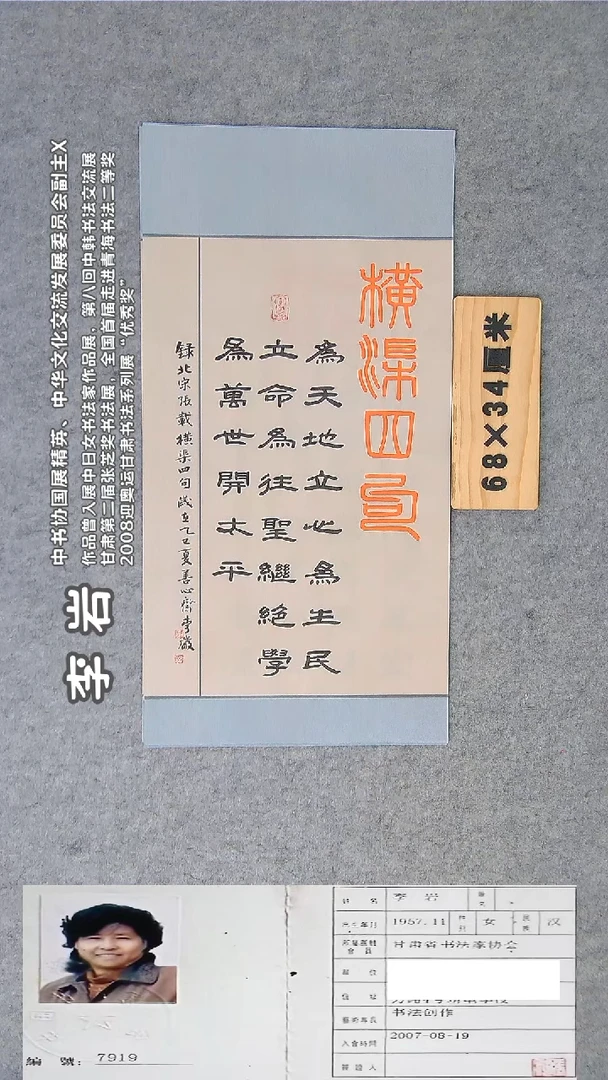 中书协国展精英、中华文化交流发展委员会副主X
作品曾入展中日女书法家作品展,第八回中韩书法交流展
甘肃第二届张芝奖书法展,全国首届走进青海书法二等奖
2008迎奥运甘肃书法系列展“优秀奖”
李岩
橫渠四句
為天地立心為生民
立命為往聖繼絕學
為萬世開太平
録北宋張載橫渠四句歲在乙巳夏善心齋李巖
68×34厘米
姓名 李岩
出生年月 1957.11 性别 女 民族 汉
所屬團體會員 甘肃省书法家协会
單位
住址
藝術專長 书法创作
入會時間 2007-08-19
簽證人
編號:7919